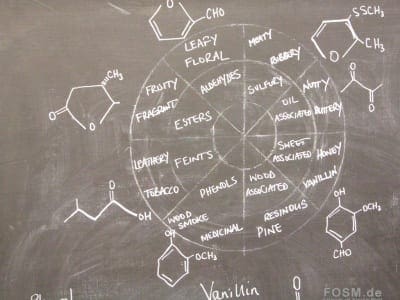 CHO
SSCH₃
O
CH₃
O
LEAFY
FLORAL
MEATY
RUBBERY
ALDEHYDES
SULFURY
CH₃
O
O
FRUITY
FRAGRANT
ESTERS
NUTTY
BUTTERY
OIL
ASSOCIATED
O
O
LEATHERY
TOBACCO
FEINTS
SWEET
ASSOCIATED
HONEY
VANILLIN
PHENOLS
WOOD
ASSOCIATED
O
OH
WOOD
SMOKE
MEDICINAL
RESINOUS
PINE
OH
OCH₃
CHO
OCH₃
Vanillin
O
FOSM.de